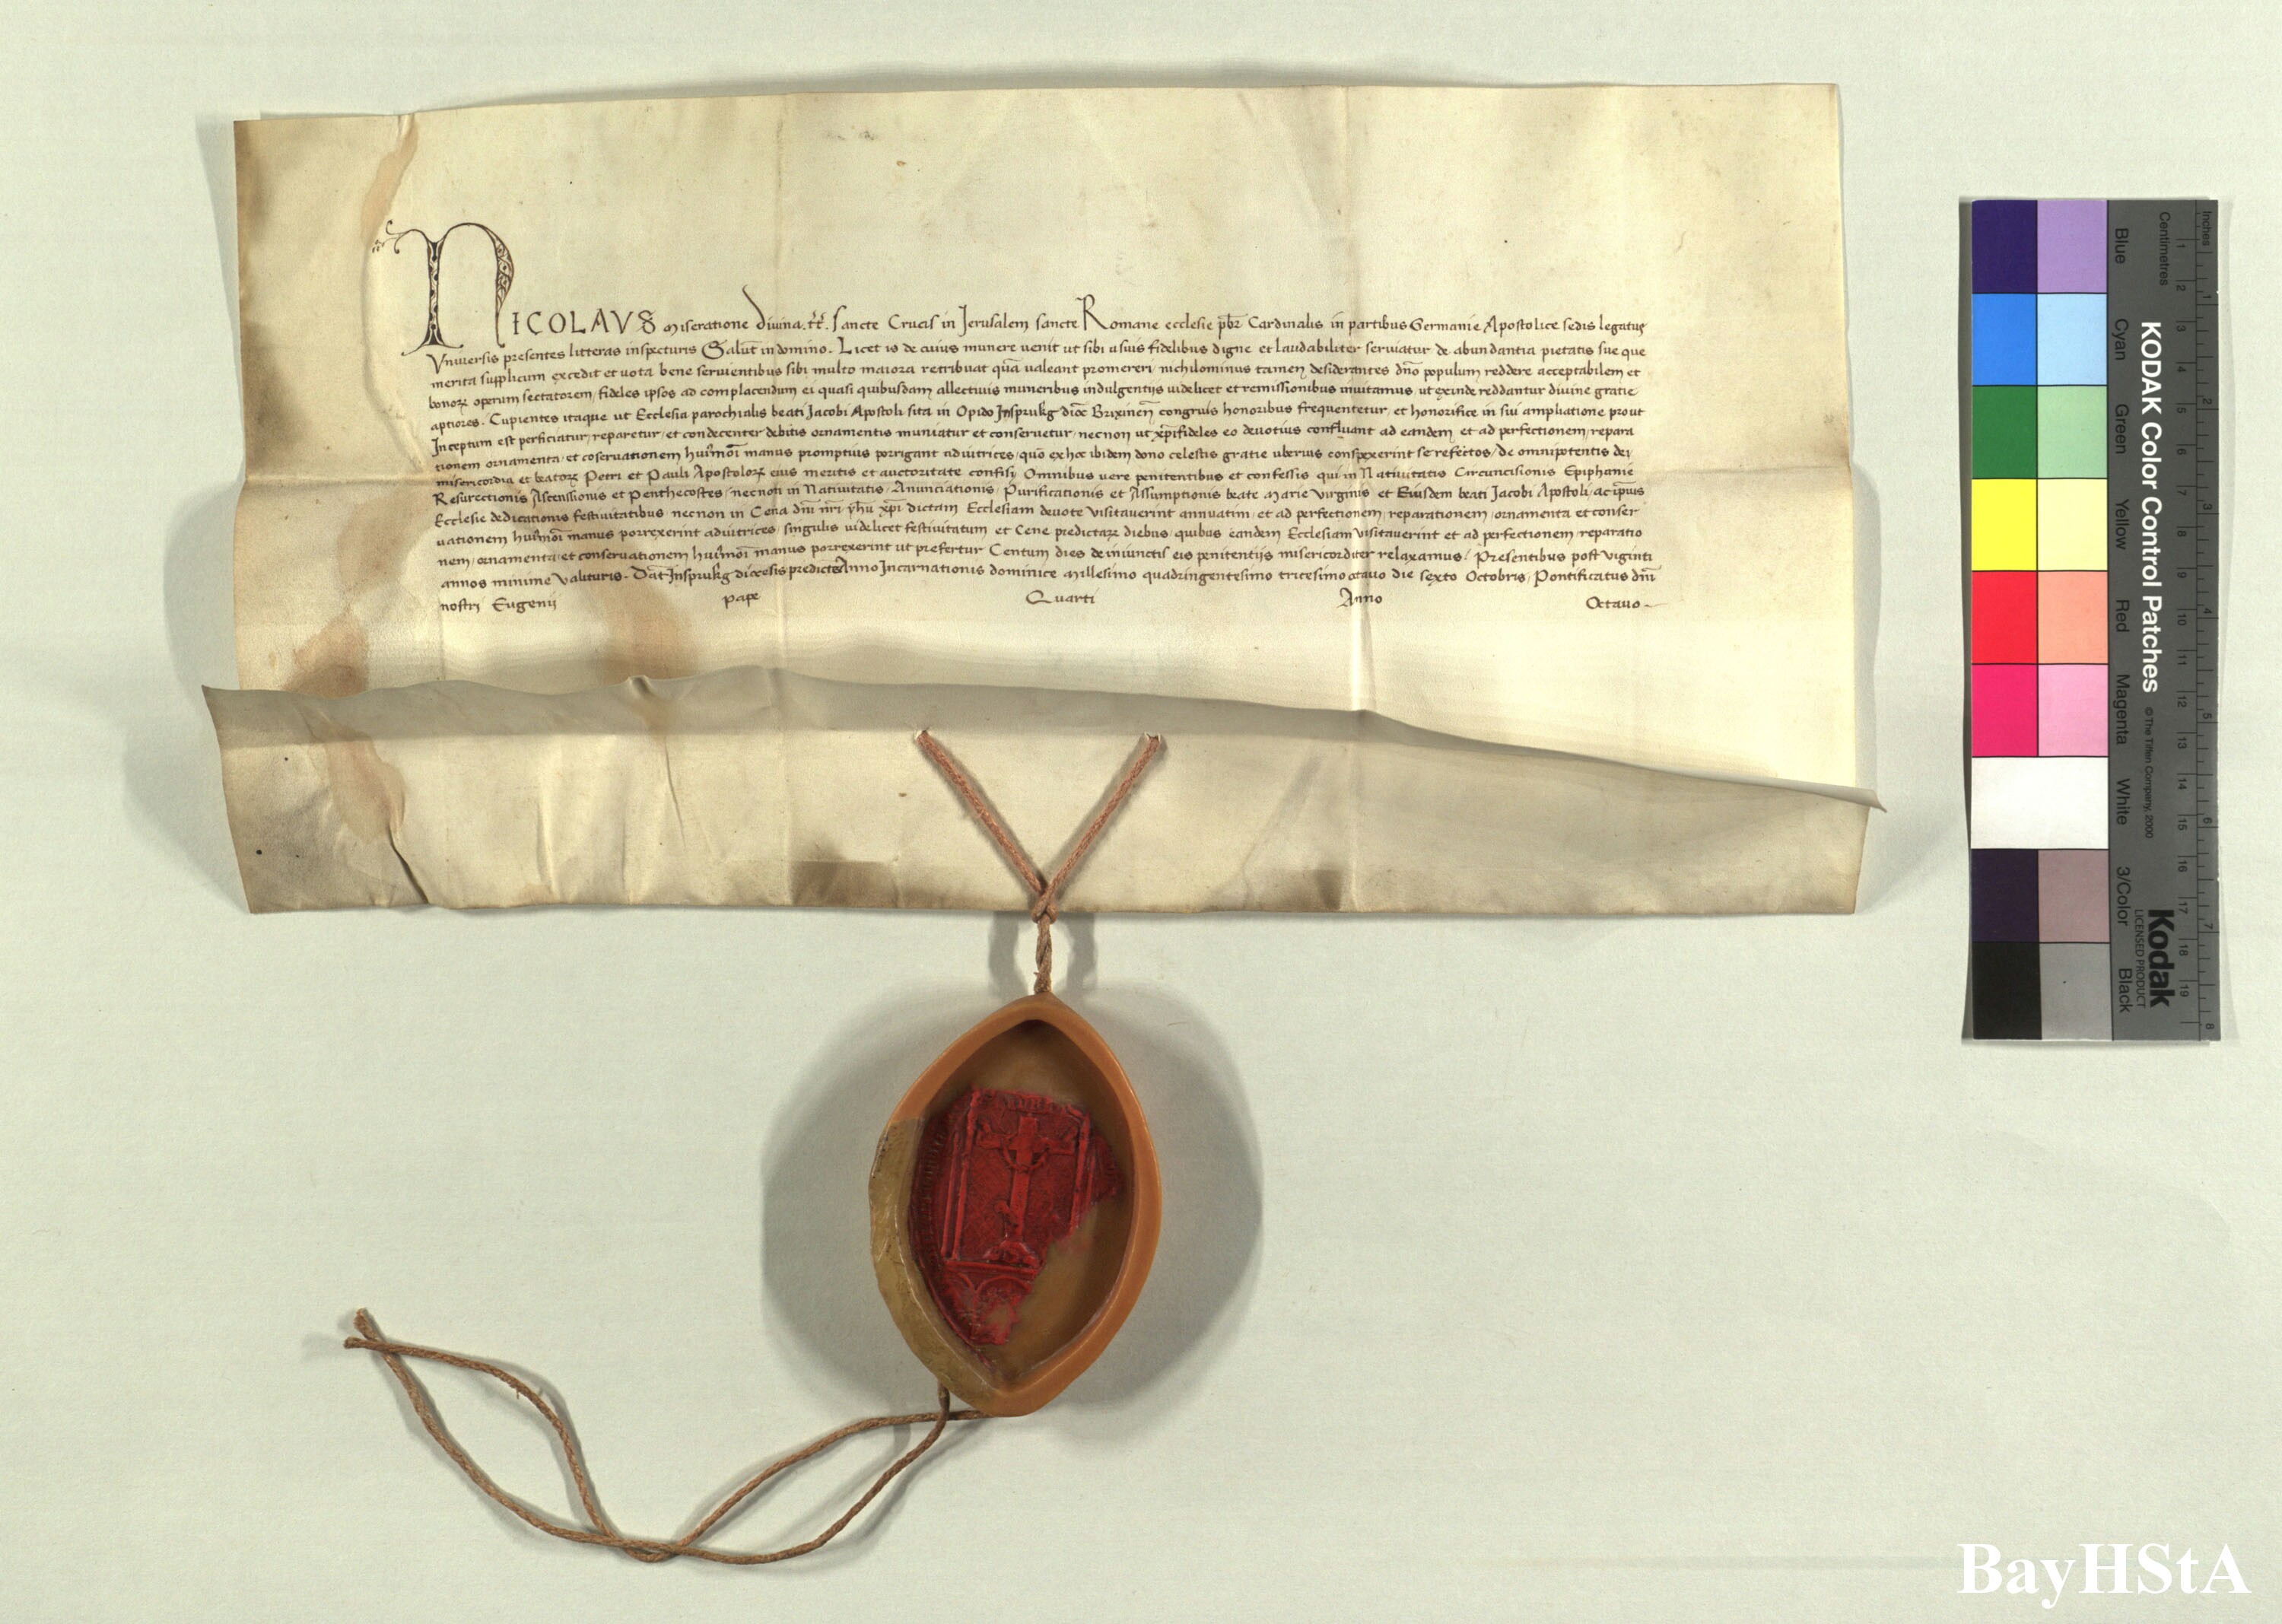 NICOLAVS miseratione divina .tt̃. sancte Crucis in Jerusalem sancte Romane ecclesie pb̃r Cardinalis in partibus Germanie Apostolice sedis legatus
Vniuersis presentes litteras inspecturis Salut̃ in domino. Licet is de cuius munere uenit ut sibi a suis fidelibus digne et laudabiliter seruiatur de abundantia pietatis sue que
merita supplicum excedit et uota bene seruientibus sibi multo maiora retribuat qua̅ ualeant promereri nichilominus tamen desiderantes dn̅o populum reddere acceptabilem et
bonoꝝ operum sectatorem, fideles ipsos ad complacendum ei quasi quibusdam allectiuis muneribus indulgentijs uidelicet et remissionibus inuitamus, ut exinde reddantur diuine gratie
aptiores. Cupientes itaque ut Ecclesia parochialis beati Jacobi Apostoli sita in Opido Insprukg dioc̅ Brixinen̅ congruis honoribus frequentetur, et honorifice in sui ampliatione prout
Inceptum est perficiatur, reparetur, et condecenter debitis ornamentis muniatur et conseruetur, necnon ut xp̅ifideles eo deuotius confluant ad eandem et ad perfectionem, repara
tionem ornamenta, et coseruationem huiu̅mo̅i manus promptius porrigant adiutrices, quo ex hoc ibidem dono celestis gratie uberius conspexerint se refectos, de omnipotentis dei
misericordia et beatoꝝ Petri et Pauli Apostoloꝝ eius meritis et auctoritate confisi, Omnibus uere penitentibus et confessis qui in Natiuitatis Circuncisionis Epiphanie
Resurectionis Ascenssionis et Penthecostes, necnon in Natiuitatis, Anunciationis, Purificationis et Assumptionis beate Marie Virginis et Eiusdem beati Jacobi Apostoli, ac ip̅ius
Ecclesie dedicationis festiuitatibus necnon in Cena dn̅i nr̅i yh̅u xp̅i dictam Ecclesiam deuote Visitauerint annuatim, et ad perfectionem, reparationem, ornamenta et conser
uationem huiu̅mo̅i manus porrexerint adiutrices, singulis uidelicet festiuitatum et Cene predictaꝝ diebus, quibus eandem Ecclesiam Visitauerint et ad perfectionem, reparatio
nem, ornamenta, et conseruationem huiu̅mo̅i manus porrexerint ut prefertur Centum dies de iniunctis eis penitentijs misericorditer relaxamus, Presentibus post Viginti
annos minime Valituris. Dat̅ Insprukg diocesis predicte Anno Incarnationis dominice Millesimo quadringentesimo tricesimo octauo die sexto Octobris, Pontificatus dn̅i
nostri Eugenij pape Quarti Anno Octauo
KODAK Color Control Patches
© The Tiffen Company, 2000
Kodak
LICENSED PRODUCT
Inches 1 2 3 4 5 6 7 8
Centimetres 1 2 3 4 5 6 7 8 9 10 11 12 13 14 15 16 17 18 19
Blue Cyan Green Yellow Red Magenta White 3/Color Black
BayHStA